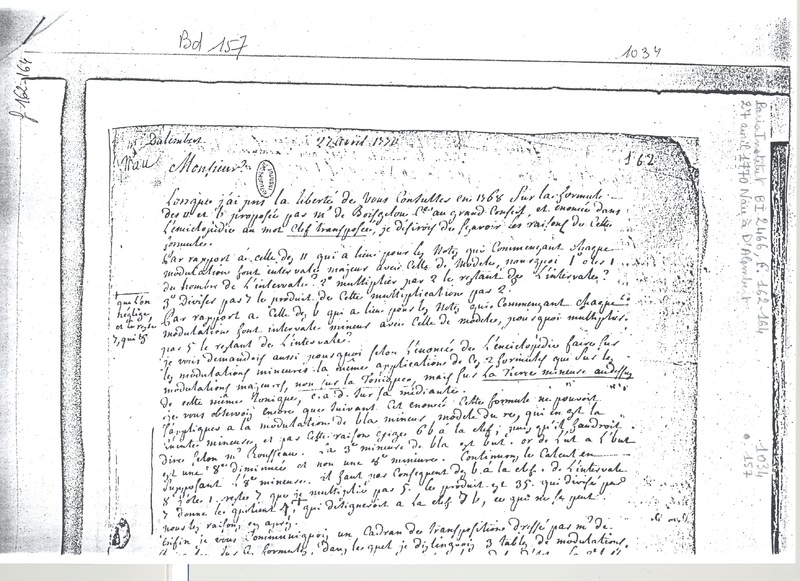 Bd 157
1034
f 162-164
27 avril 1770
162
Monsieur
Lorsque j'ai pris la liberté de vous Consulter en 1768 Sur la formule
des # et b proposée par mr de Boisgelou Cer au grand Conseil, et enoncée dans
L'enciclopédie au mot Clef transposée, je désirois de sçavoir les raisons de Cette
formule.
Par rapport a celle des # qui a lieu pour les Notes qui Commençant Chaque
modulation font intervale majeur avec Celle de Modele, pourquoi 1° oter 1
du Nombre de L'intervale? 2° multiplier par 2 le restant de L'intervale?
3° Diviser par 7 le produit de Cette multiplication par 2?
Par rapport a Celle des b qui a lieu pour les Notes qui Commençant Chaque
modulation font intervale mineur avec Celle de modele, pourquoi multiplier
par 5 le restant de L'intervale?
je vous demandois aussi pourquoi selon L'énoncé de L'enciclopédie faire sur
les modulations mineures la même application de Ces 2 formules que sur les
modulations majeures, non sur la Tonique, mais sur la tierce mineure audessus
de cette même Tonique, c.a.d. sur la médiante.
je vous observois encore que suivant Cet enoncé Cette formule ne pouvoit
s'appliquer a la modulation de bla mineur modele du re, qui en est la
mineure, et par Cette raison exige 6 b à la clef; puisqu'il faudroit
dire selon mr Rousseau. La 3ce mineure de bla est but. or de l'ut a l'but
est une 8ve diminuée et non une 8ve mineure. Continuons le Calcul en
supposant L'8ve mineure. il faut par Consequent des b à la clef. de L'intervale
8 j'ôte 1. reste 7 que je multiplie par 5. le produit est 35. qui divisé par
7 donne
qui désigneroit a la clef 7 b, ce qui ne se peut
pour les raisons cy après.
Enfin je vous Communiquois un Cadran des transpositions dressé par mr de
formule, dans lequel je distinguois 3 tables de modulations.
que l'on
néglige,
et le reste
7, qui est
Paris, Institut BI 2466, f. 162-164
27 avril 1770 Nau à D'Alembert
1034
157